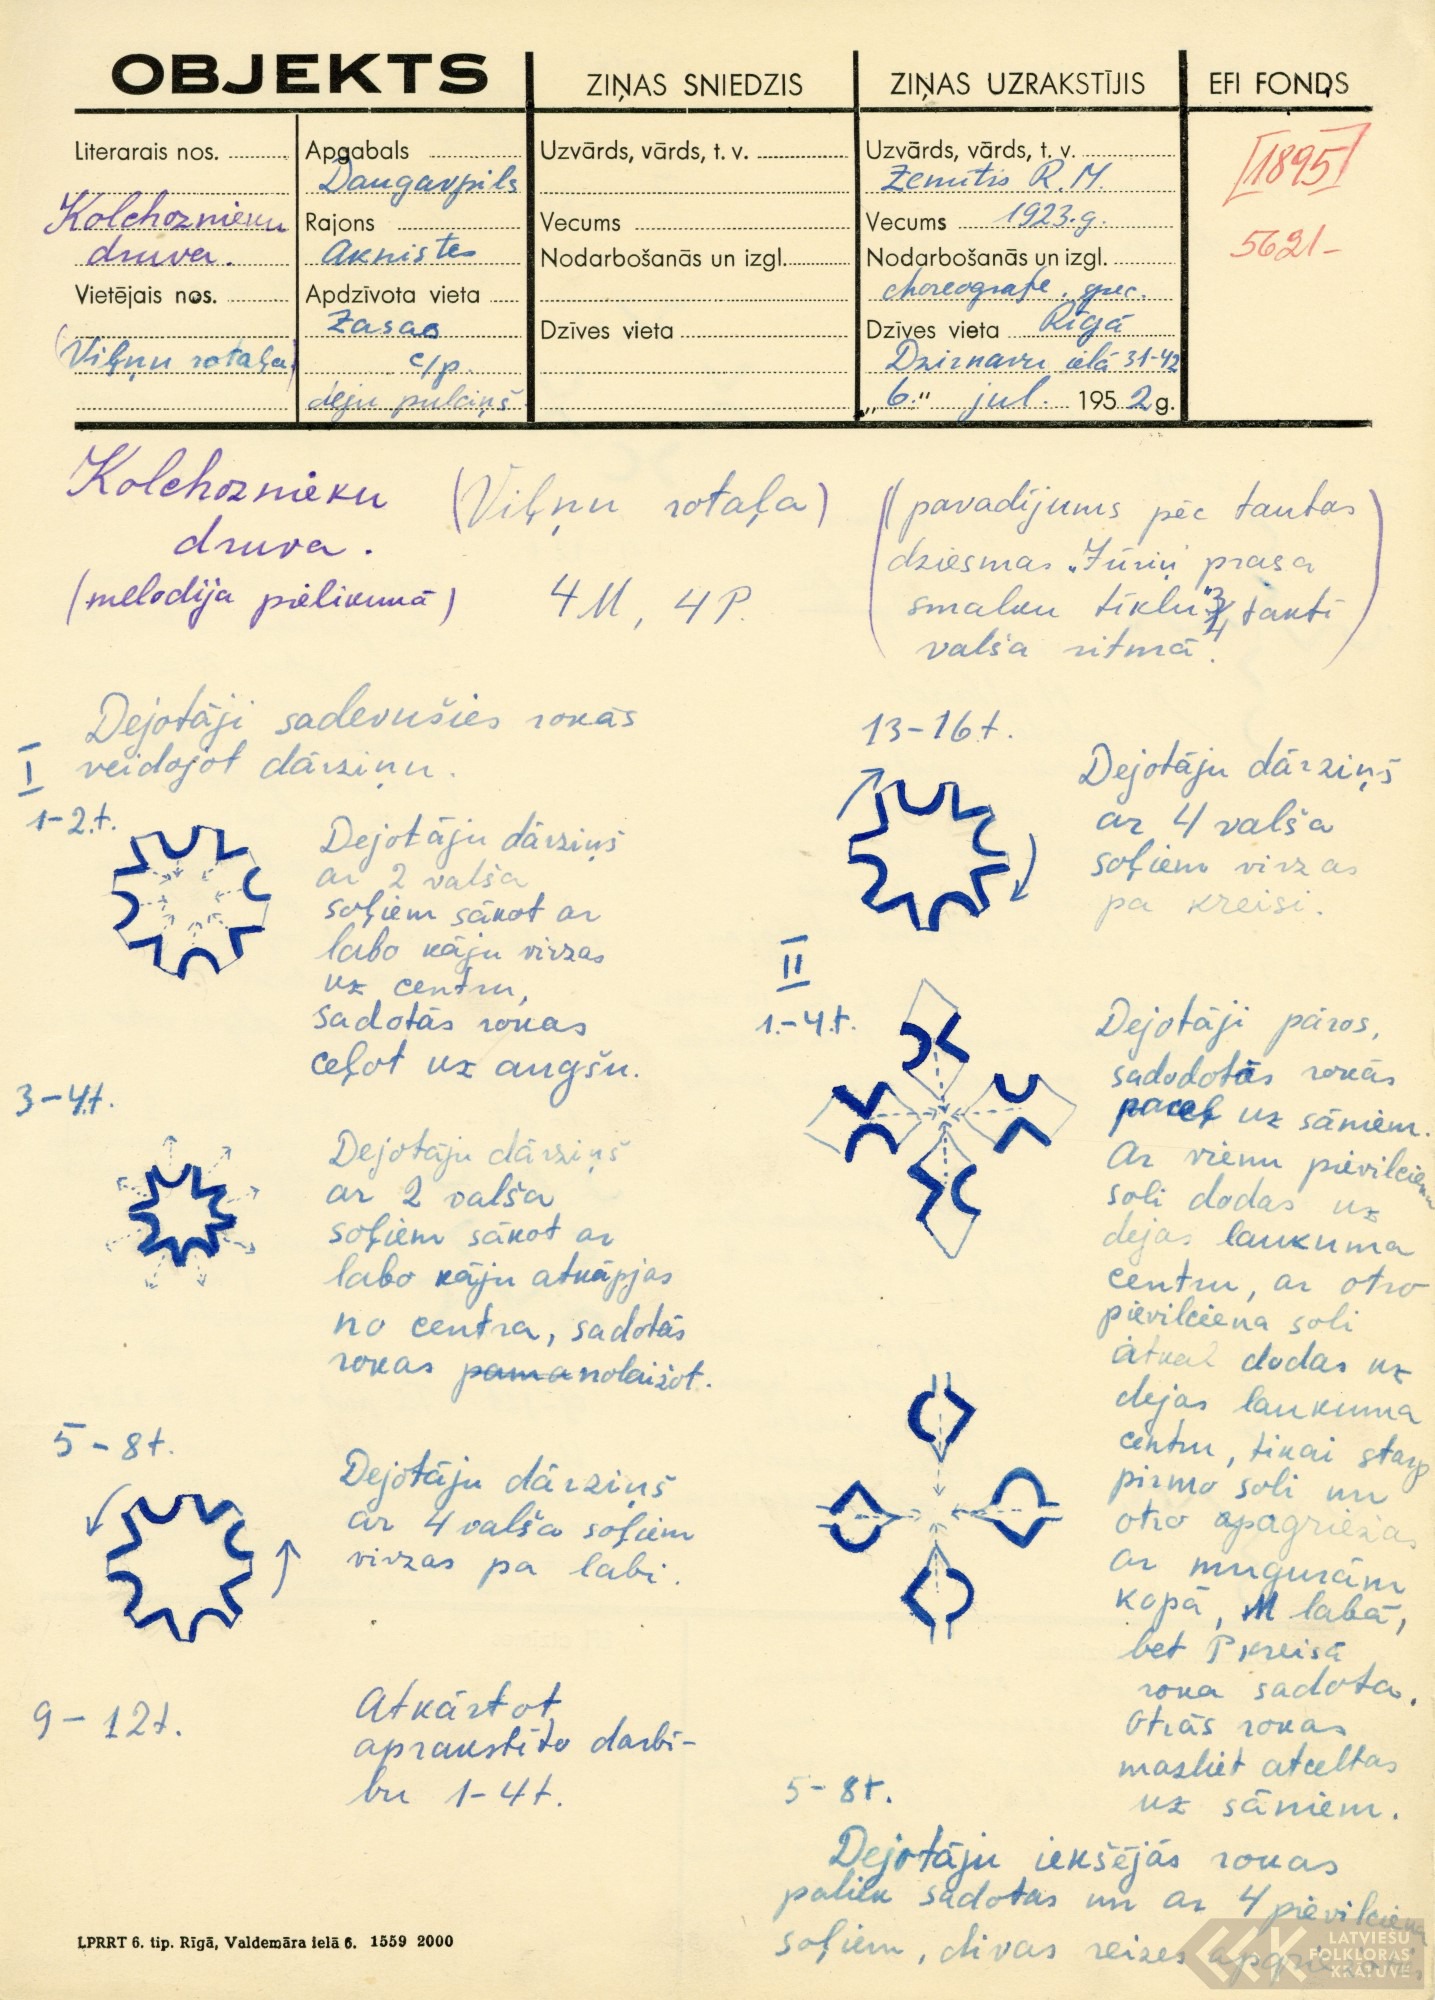 OBJEKTS
ZIŅAS SNIEDZIS
ZIŅAS UZRAKSTĪJIS
EFI FONDS
Literarais nos.
Kolchoznieku
druva.
Vietējais nos.
(Viļņu rotaļa)
Apgabals
Daugavpils
Rajons
Aknistes
Apdzīvota vieta
Zasas
c/p.
deju pulciņš
Uzvārds, vārds, t. v.
Vecums
Nodarbošanās un izgl.
Dzīves vieta
Uzvārds, vārds, t. v.
Zemītis R. M.
Vecums 1923.g.
Nodarbošanās un izgl.
choreografe, spec.
Dzīves vieta Rīgā
Dzirnavu ielā 31-42
"6." jul. 1952 g.
[1895]
5621-
Kolchoznieku
druva.
(melodija pielikumā)
(Viļņu rotaļa)
4M, 4P.
(pavadījums pēc tautas
dziesmas „Jūriņ prasa
smalku tīklu" 3/4 taktī
valša ritmā.)
Dejotāji sadevušies rokās
veidojot dārziņu.
I
1-2.t.
Dejotāju dārziņš
ar 2 valša
soļiem sākot ar
labo kāju virzas
uz centru,
sadotās rokas
ceļot uz augšu.
3-4.t.
Dejotāju dārziņš
ar 2 valša
soļiem sākot ar
labo kāju atkāpjas
no centra, sadotās
rokas pama nolaižot.
5-8t.
Dejotāju dārziņš
ar 4 valša soļiem
virzas pa labi.
9-12t.
Atkārtot
aprakstīto darbī-
bu 1-4t.
13-16t.
Dejotāju dārziņš
ar 4 valša
soļiem virzas
pa kreisi.
II
1.-4.t.
Dejotāji pāros,
sadodotās rokās
paceļ uz sāniem.
Ar vienu pievilciena
soli dodas uz
dejas laukuma
centru, ar otro
pievilciena soli
atkal dodas uz
dejas laukuma
centru, tikai starp
pirmo soli un
otro apagriežas
ar mugurām
kopā, M labā,
bet P kreisā
roka sadota.
Otrās rokas
mazliet atceltas
uz sāniem.
5-8t.
Dejotāju iekšējās rokas
paliek sadotas un ar 4 pievilciena
soļiem, divas reizes
LPRRT 6. tip. Rīgā, Valdemāra ielā 6. 1559 2000
LATVIEŠU
FOLKLORAS
KRĀTUVE